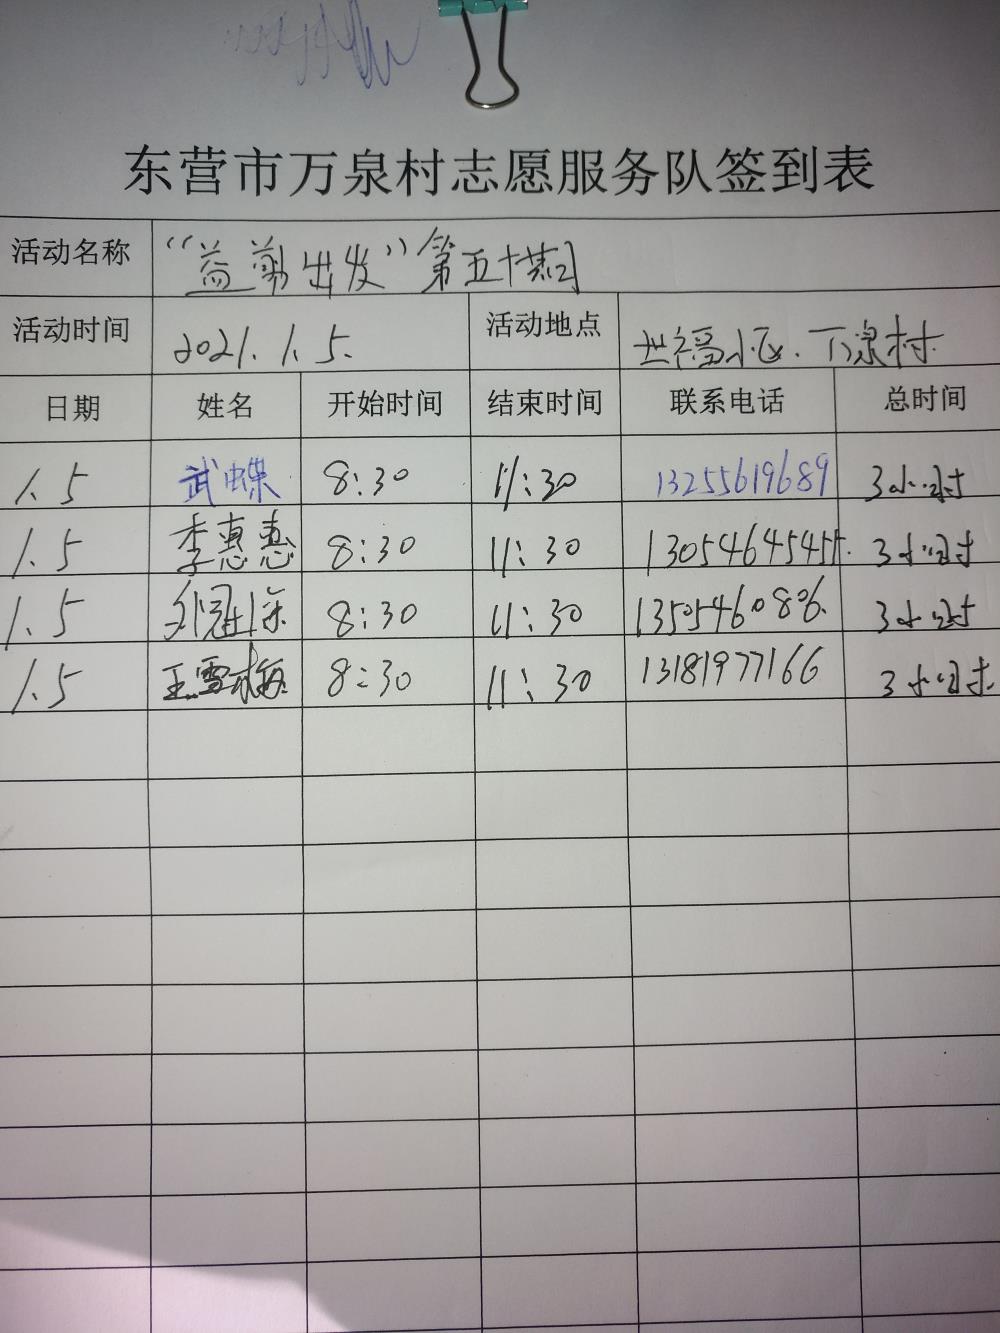 东营市万泉村志愿服务队签到表
活动名称 “益剪出发”第五十期
活动时间 2021.1.5. 活动地点 世福小区.万泉村
日期 姓名 开始时间 结束时间 联系电话 总时间
1.5 武蝶 8:30 11:30 13255619689 3小时
1.5 李惠惠 8:30 11:30 13054645455. 3小时
1.5 8:30 11:30 3小时
1.5 王雪梅 8:30 11:30 13181977166 3小时.